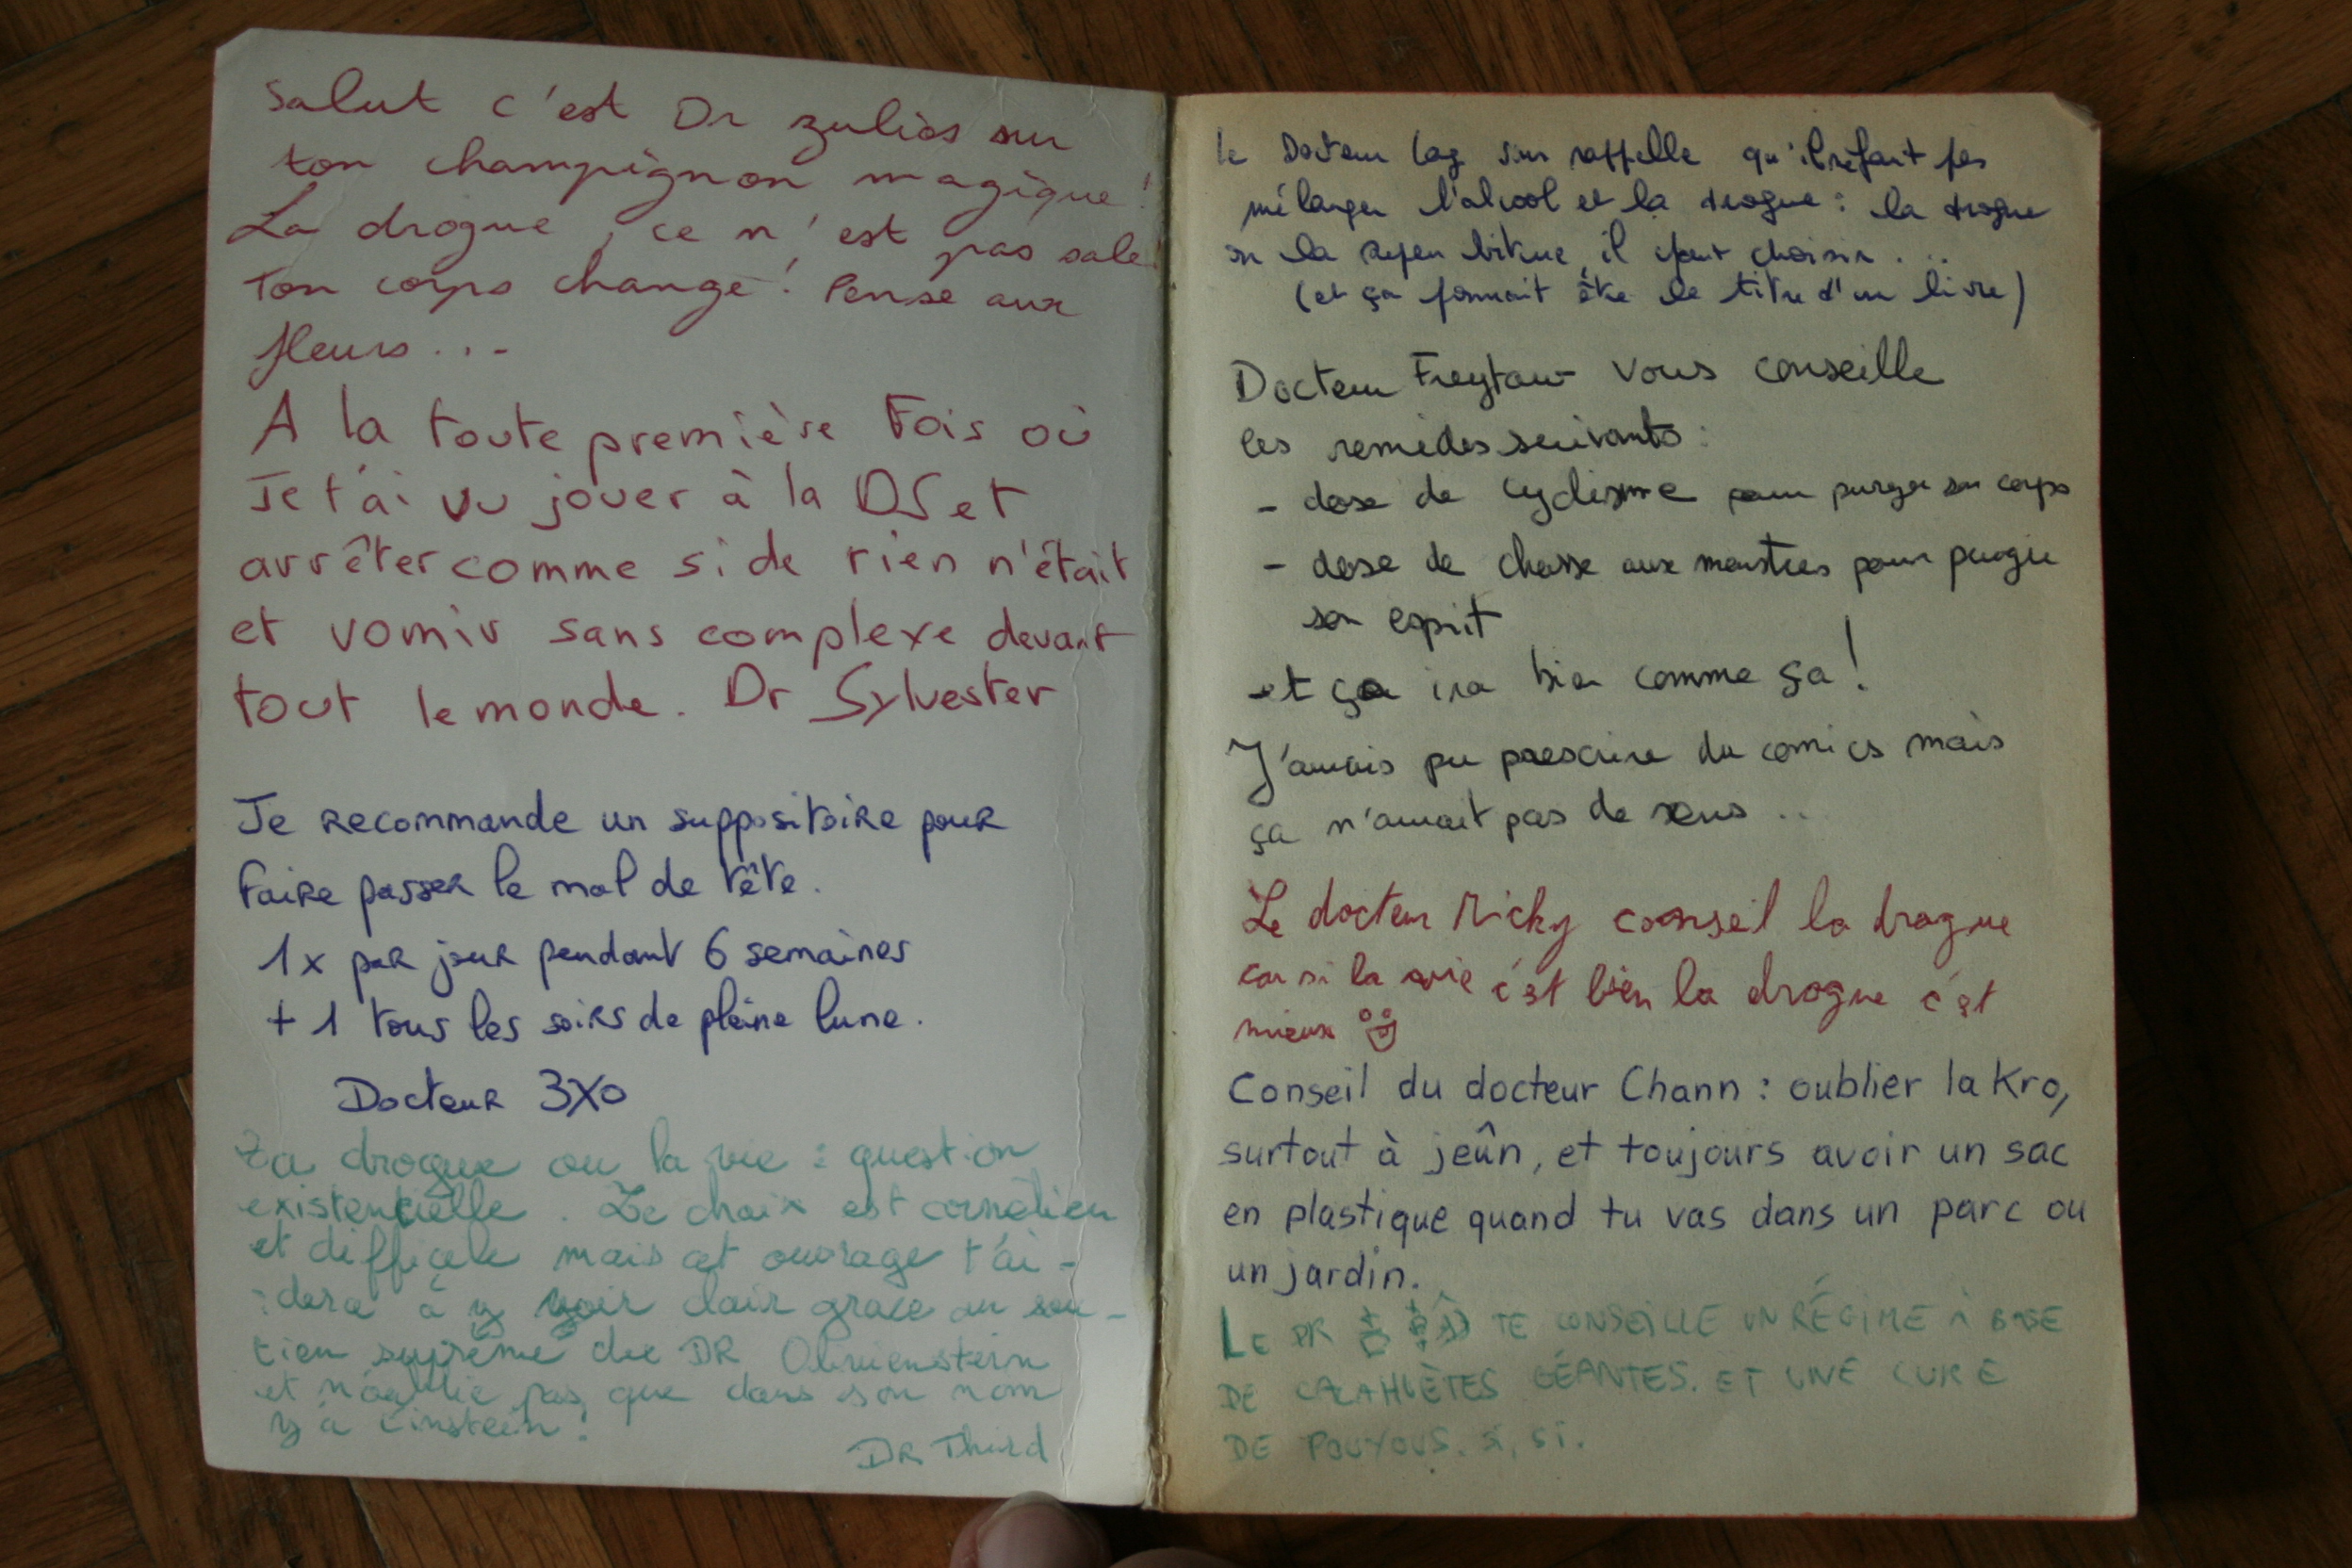 Salut c'est Dr zulios sur
ton champignon magique !
La drogue, ce n'est pas sale
Ton corps change ! Pense aux
fleurs...
A la toute première Fois où
Je t'ai vu jouer à la DS et
arrêter comme si de rien n'était
et vomir sans complexe devant
tout le monde. Dr Sylvester
Je recommande un suppositoire pour
faire passer le mal de tête.
1x par jour pendant 6 semaines
+ 1 tous les soirs de pleine lune.
Docteur 3X0
La drogue ou la vie : question
existentielle. Le choix est cornélien
et difficile mais cet ouvrage t'ai-
dera à y voir clair grace au sou-
tien suprême du DR
et n'oublie pas que dans son nom
y a einstein !
DR Third
le Docteur rappelle qu'il ne faut pas
mélanger l'alcool et la drogue : la drogue
ou la biture, il faut choisir...
(et ça pourrait être le titre d'un livre)
Docteur vous conseille
les remèdes suivants :
- dose de cyclisme pour purger son corps
- dose de chasse aux monstres pour purger
son esprit
et ça ira bien comme ça !
J'aurais pu prescrire du comics mais
ça n'aurait pas de sens ..
Le docteur Ricky conseil la drogue
car si la vie c'est bien la drogue c'est
mieux
Conseil du docteur Chann : oublier la Kro,
surtout à jeûn, et toujours avoir un sac
en plastique quand tu vas dans un parc ou
un jardin.
LE DR TE CONSEILLE UN RÉGIME À BASE
DE CACAHUÈTES GÉANTES. ET UNE CURE
DE POUYOUS. SI, SI.